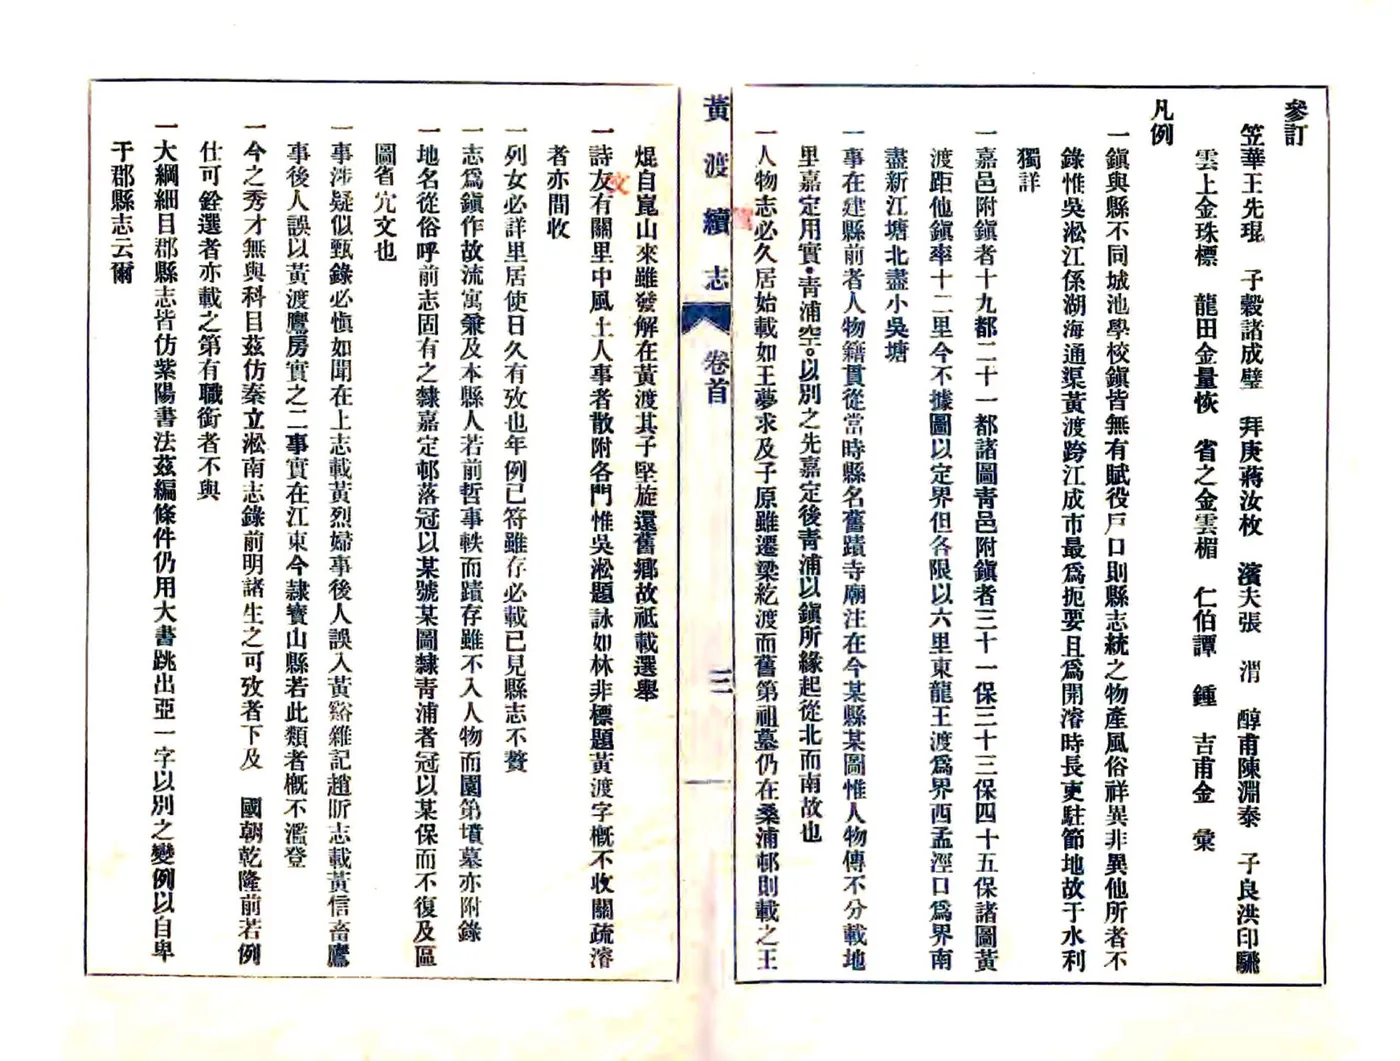 參訂
笠華王先琨　子穀諸成璧　拜庚蔣汝枚　濱夫張　渭　醇甫陳淵泰　子良洪印颿
雲上金珠標　龍田金量恢　省之金雲楣　仁伯譚　鍾　吉甫金　彙
凡例
一鎮與縣不同城池學校鎮皆無有賦役戸口則縣志統之物產風俗祥異非異他所者不
錄惟吳淞江係湖海通渠黃渡跨江成市最爲扼要且爲開濬時長吏駐節地故于水利
獨詳
一嘉邑附鎮者十九都二十一都諸圖靑邑附鎮者三十一保三十三保四十五保諸圖黃
渡距他鎮率十二里今不據圖以定界但各限以六里東龍王渡爲界西孟涇口爲界南
盡新江塘北盡小吳塘
一事在建縣前者人物籍貫從當時縣名舊蹟寺廟注在今某縣某圖惟人物傳不分載地
里嘉定用實●靑浦空○以別之先嘉定後靑浦以鎮所緣起從北而南故也
一人物志必久居始載如王夢求及子原雖遷梁紇渡而舊第祖墓仍在桑浦邨則載之王
黃渡續志　卷首　三
焜自崑山來雖發解在黃渡其子堅旋還舊鄉故祗載選舉
一詩友有關里中風土人事者散附各門惟吳淞題詠如林非標題黃渡字槪不收關疏濬
文
者亦間收
一列女必詳里居使日久有攷也年例已符雖存必載已見縣志不贅
一志爲鎮作故流寓兼及本縣人若前哲事軼而蹟存雖不入人物而園第墳墓亦附錄
一地名從俗呼前志固有之隸嘉定邨落冠以某號某圖隸靑浦者冠以某保而不復及區
圖省宂文也
一事涉疑似甄錄必愼如聞在上志載黃烈婦事後人誤入黃谿雜記趙昕志載黃信畜鷹
事後人誤以黃渡鷹房實之二事實在江東今隸寶山縣若此類者槪不濫登
一今之秀才無與科目茲仿秦立淞南志錄前明諸生之可攷者下及　國朝乾隆前若例
仕可銓選者亦載之第有職銜者不與
一大綱細目郡縣志皆仿紫陽書法茲編條件仍用大書跳出亞一字以別之變例以自卑
于郡縣志云爾